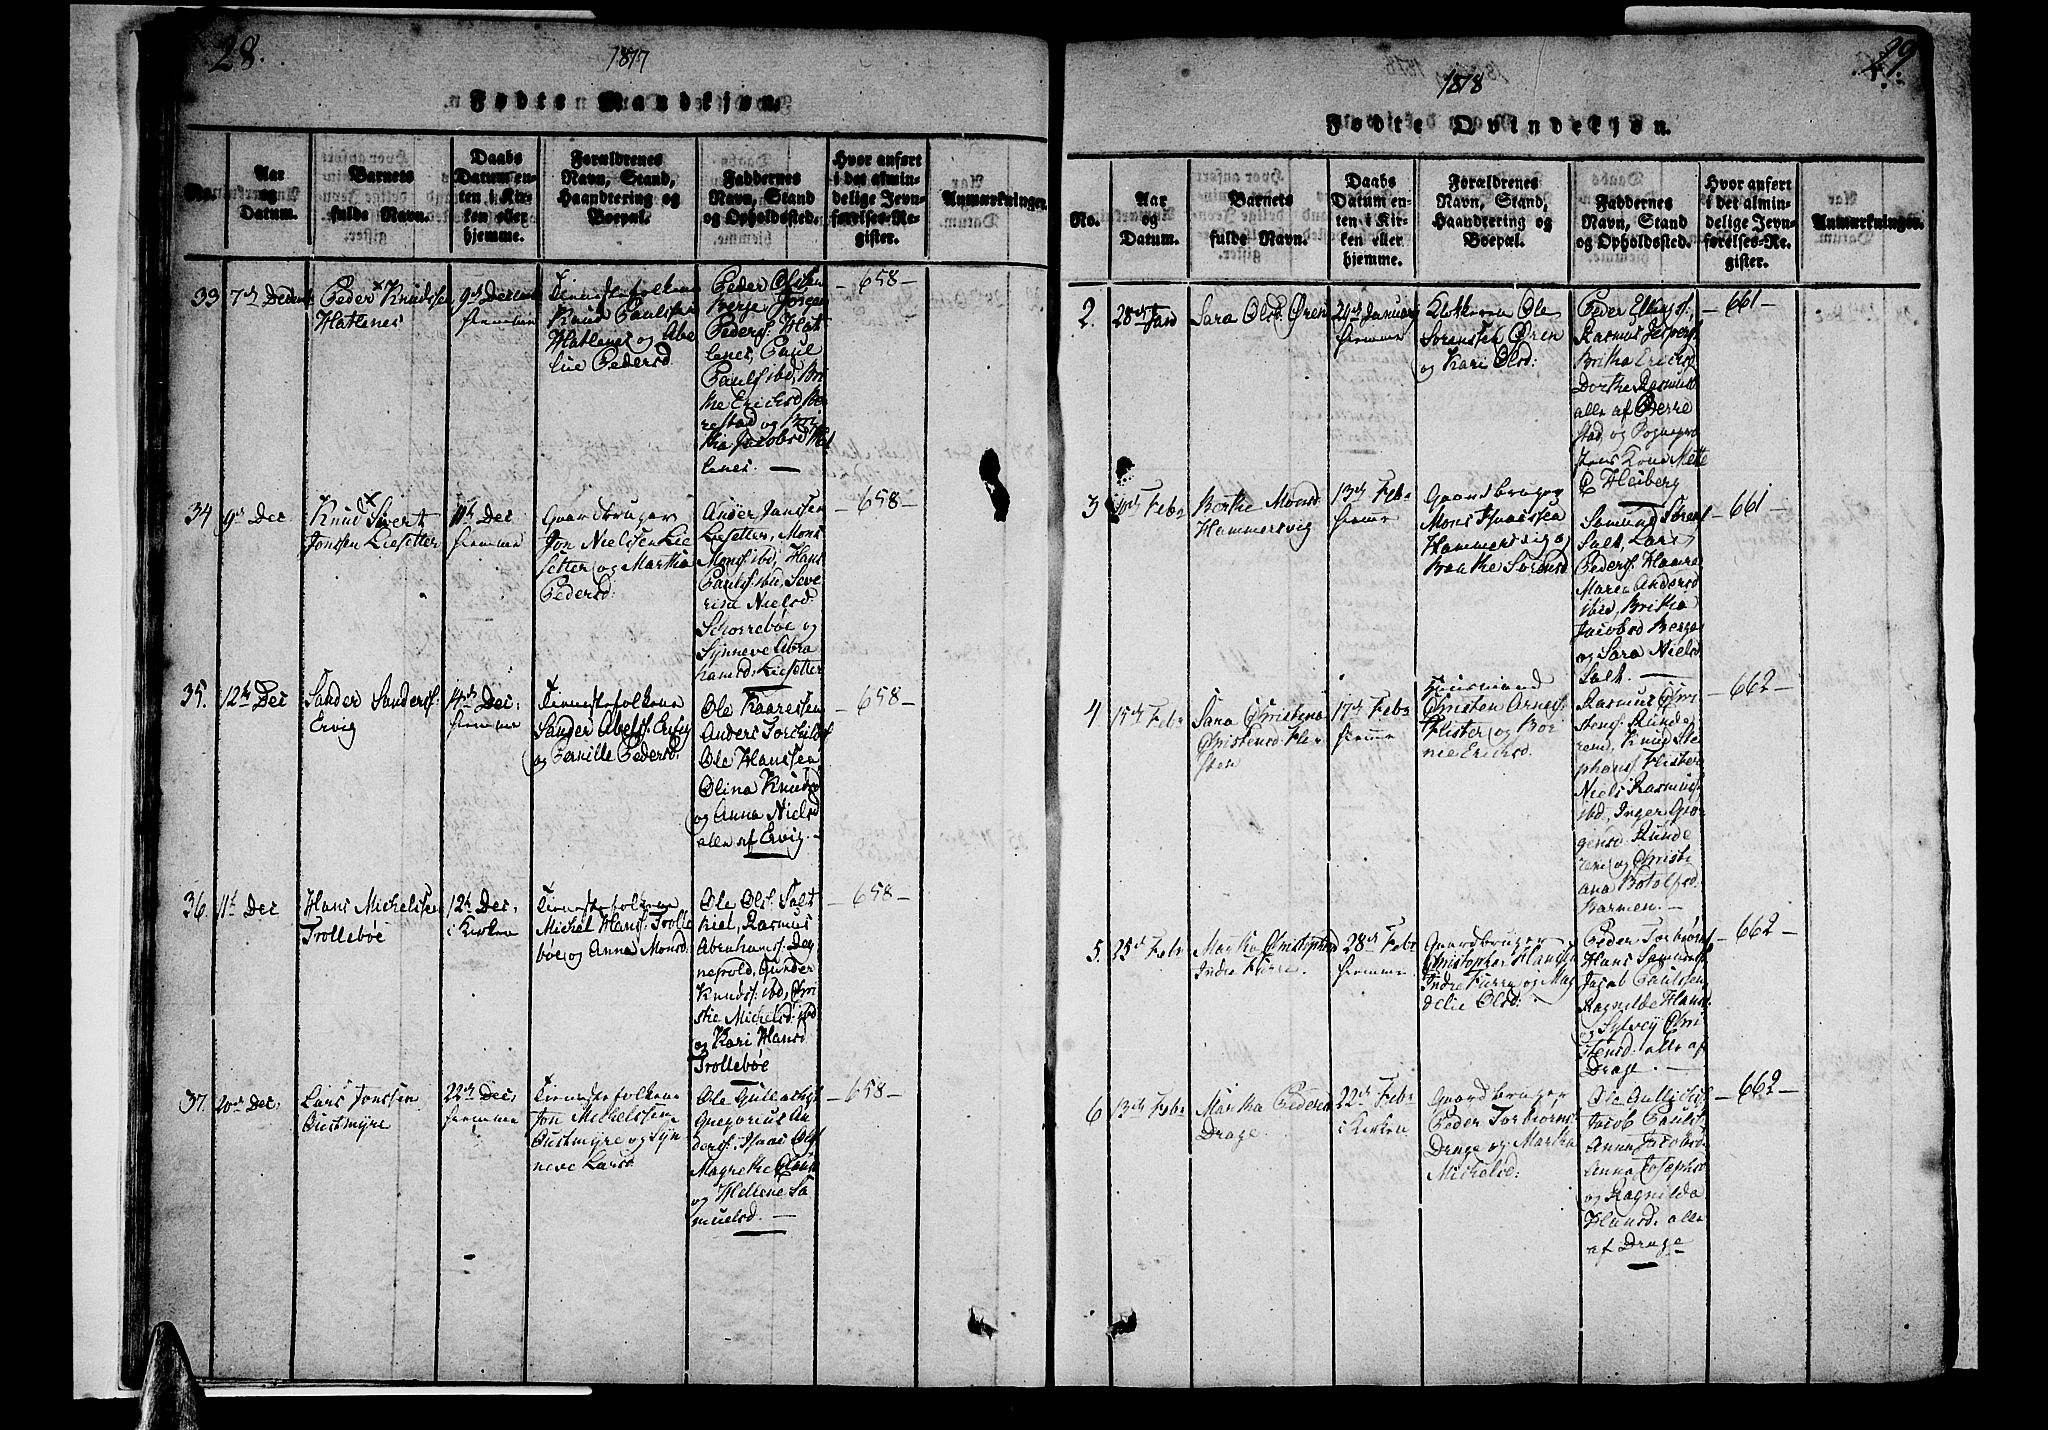 28.
1817
Fødte Mandkjøn.
No.
Aar
og
Datum.
Barnets
fulde Navn.
Daabs
Datum en-
ten i Kir-
ken eller
hjemme.
Forældrenes
Navn, Stand,
Haandtering og
Boepæl.
Faddernes
Navn, Stand
og Opholdssted.
Hvor anført
i det almin-
delige Jevn-
førelses-Re-
gister.
Anmærkninger.
33
7de Decemb
Peder Knudssen
Hatlenes
9de Decemb
hiemme
Tienestefolkene
Knud Paulssen
Hatlenes og Abe
lue Pedersd
Peder Olssen
Berge, Jørgen
Peders. Hat
lenes, Paul
Pauls. ibd, Bri
the Ericksd Ber
restad og
thia Jacobsd Hat
lenes. —
— 658 —
34
9de Dec
Knud Sivert
Jonssen Liesetter
10de Dec
hiemme
Gaardbruger
Jon Nielsen Lie
setter og Martha
Pedersd:
Anders Janssen
Liesetter, Mons
Mons. ibd, Hans
Pauls. ibd, Seve
rina Nielsd
Schorrebøe og
Synneve Abra
hamsd. Liesetter
— 658 —
35.
12te Dec
Sander Sanders:
Ervig
14de Dec:
hiemme
Tienestefolkene
Sander Abels. Ervig
og Pernille Pedersd:
Ole Kaaressen
Anders Torchilds
Ole Hanssen
Olina Knudsd
og Anna Nielsd
alle af Ervig. —
— 658 —
36.
11te Dec
Hans Michelssen
Trollebøe
12te Dec:
i Kirken
Tienestefolkene
Michel Hans. Trolle
bøe og Anna Monsd:
Ole Ols. Salt
kiel, Rasmus
Abrahams. Deg
nepold, Gunder
Knuds. ibd, Chri
stie Michelsd. ibd
og Kari Hansd
Trollebøe
— 658 —
37.
20de Dec:
Lars Jonssen
Custmyre
22de Dec:
hiemme
Tienestefolkene
Jon Michelssen
Custmyre og Syn
neve Larsd
Ole Gullachs.
Gregorius An
ders. Isaac Ols.
Magrethe
og Hellene Sa
muelsd. —
— 658 —
29.
1818
Fødte Qvindekjøn.
No.
Aar
og
Datum.
Barnets
fulde Navn.
Daabs
Datum en-
ten i Kir-
ken eller
hjemme.
Forældrenes
Navn, Stand,
Haandtering og
Boepæl.
Faddernes
Navn, Stand
og Opholdssted.
Hvor anført
i det almin-
delige Jevn-
førelses-Re-
gister.
Anmærkninger.
2.
28de Jan
Sara Olsd. Øren
29de Januar
hiemme
Klokkeren Ole
Sørenssen Øren
og Kari Olsd:
Peder Ellings.
Rasmus Jespers.
Britha Ericksd
Dorthe Rasmusd
alle af Berre
stad og Sognepre
stens Kone Mette
C Heiberg
— 661 —
3
10de Febr
Berthe Monsd
Hammersvig
13de Febr
hiemme
Gaardbruger
Mons Isaacssen
Hammersvig og
Berthe Sørensd
Samund Sørens
Salt, Lars
Peders. Haare
Maren Andersd
ibid, Britha
Jacobsd Berge
og Sara Nielsd
Salt. —
— 661 —
4
15de Febr
Sara Christina
Christensd Fli
sten
17de Febr
hiemme
Huusmand
Christen Arnes.
Flister og Bor
nie Ericksd.
Rasmus Chri
stens. Runde
rem, Knud Ste
phans. Flister
Niels Rasmus.
ibd, Inger Gre
gersd. Runde
rem og Christi
ana Botolfsd.
Barmen. —
— 662 —
5.
25de Febr
Martha Christophersd
Indre Furre.
28de Febr
hiemme
Gaardbruger
Christopher Hans.
Indre Furre og Mag
delie Olsd:
Peder Torbiørns.
Hans Samuels.
Jacob Paulssen
Ragnilde Hansd
og Sylvey Chri
stensd. alle af
Drage. —
— 662 —
6
13de Febr
Martha Pedersd
Drage
22de Febr
i Kirken
Gaardbruger
Peder Torbiørns.
Drage og Martha
Michelsd:
Ole
Jacob Pauls.
Anna Jacobsd.
Anna Josephsd
og Ragnilda
Hansd. alle
af Drage
— 662 —